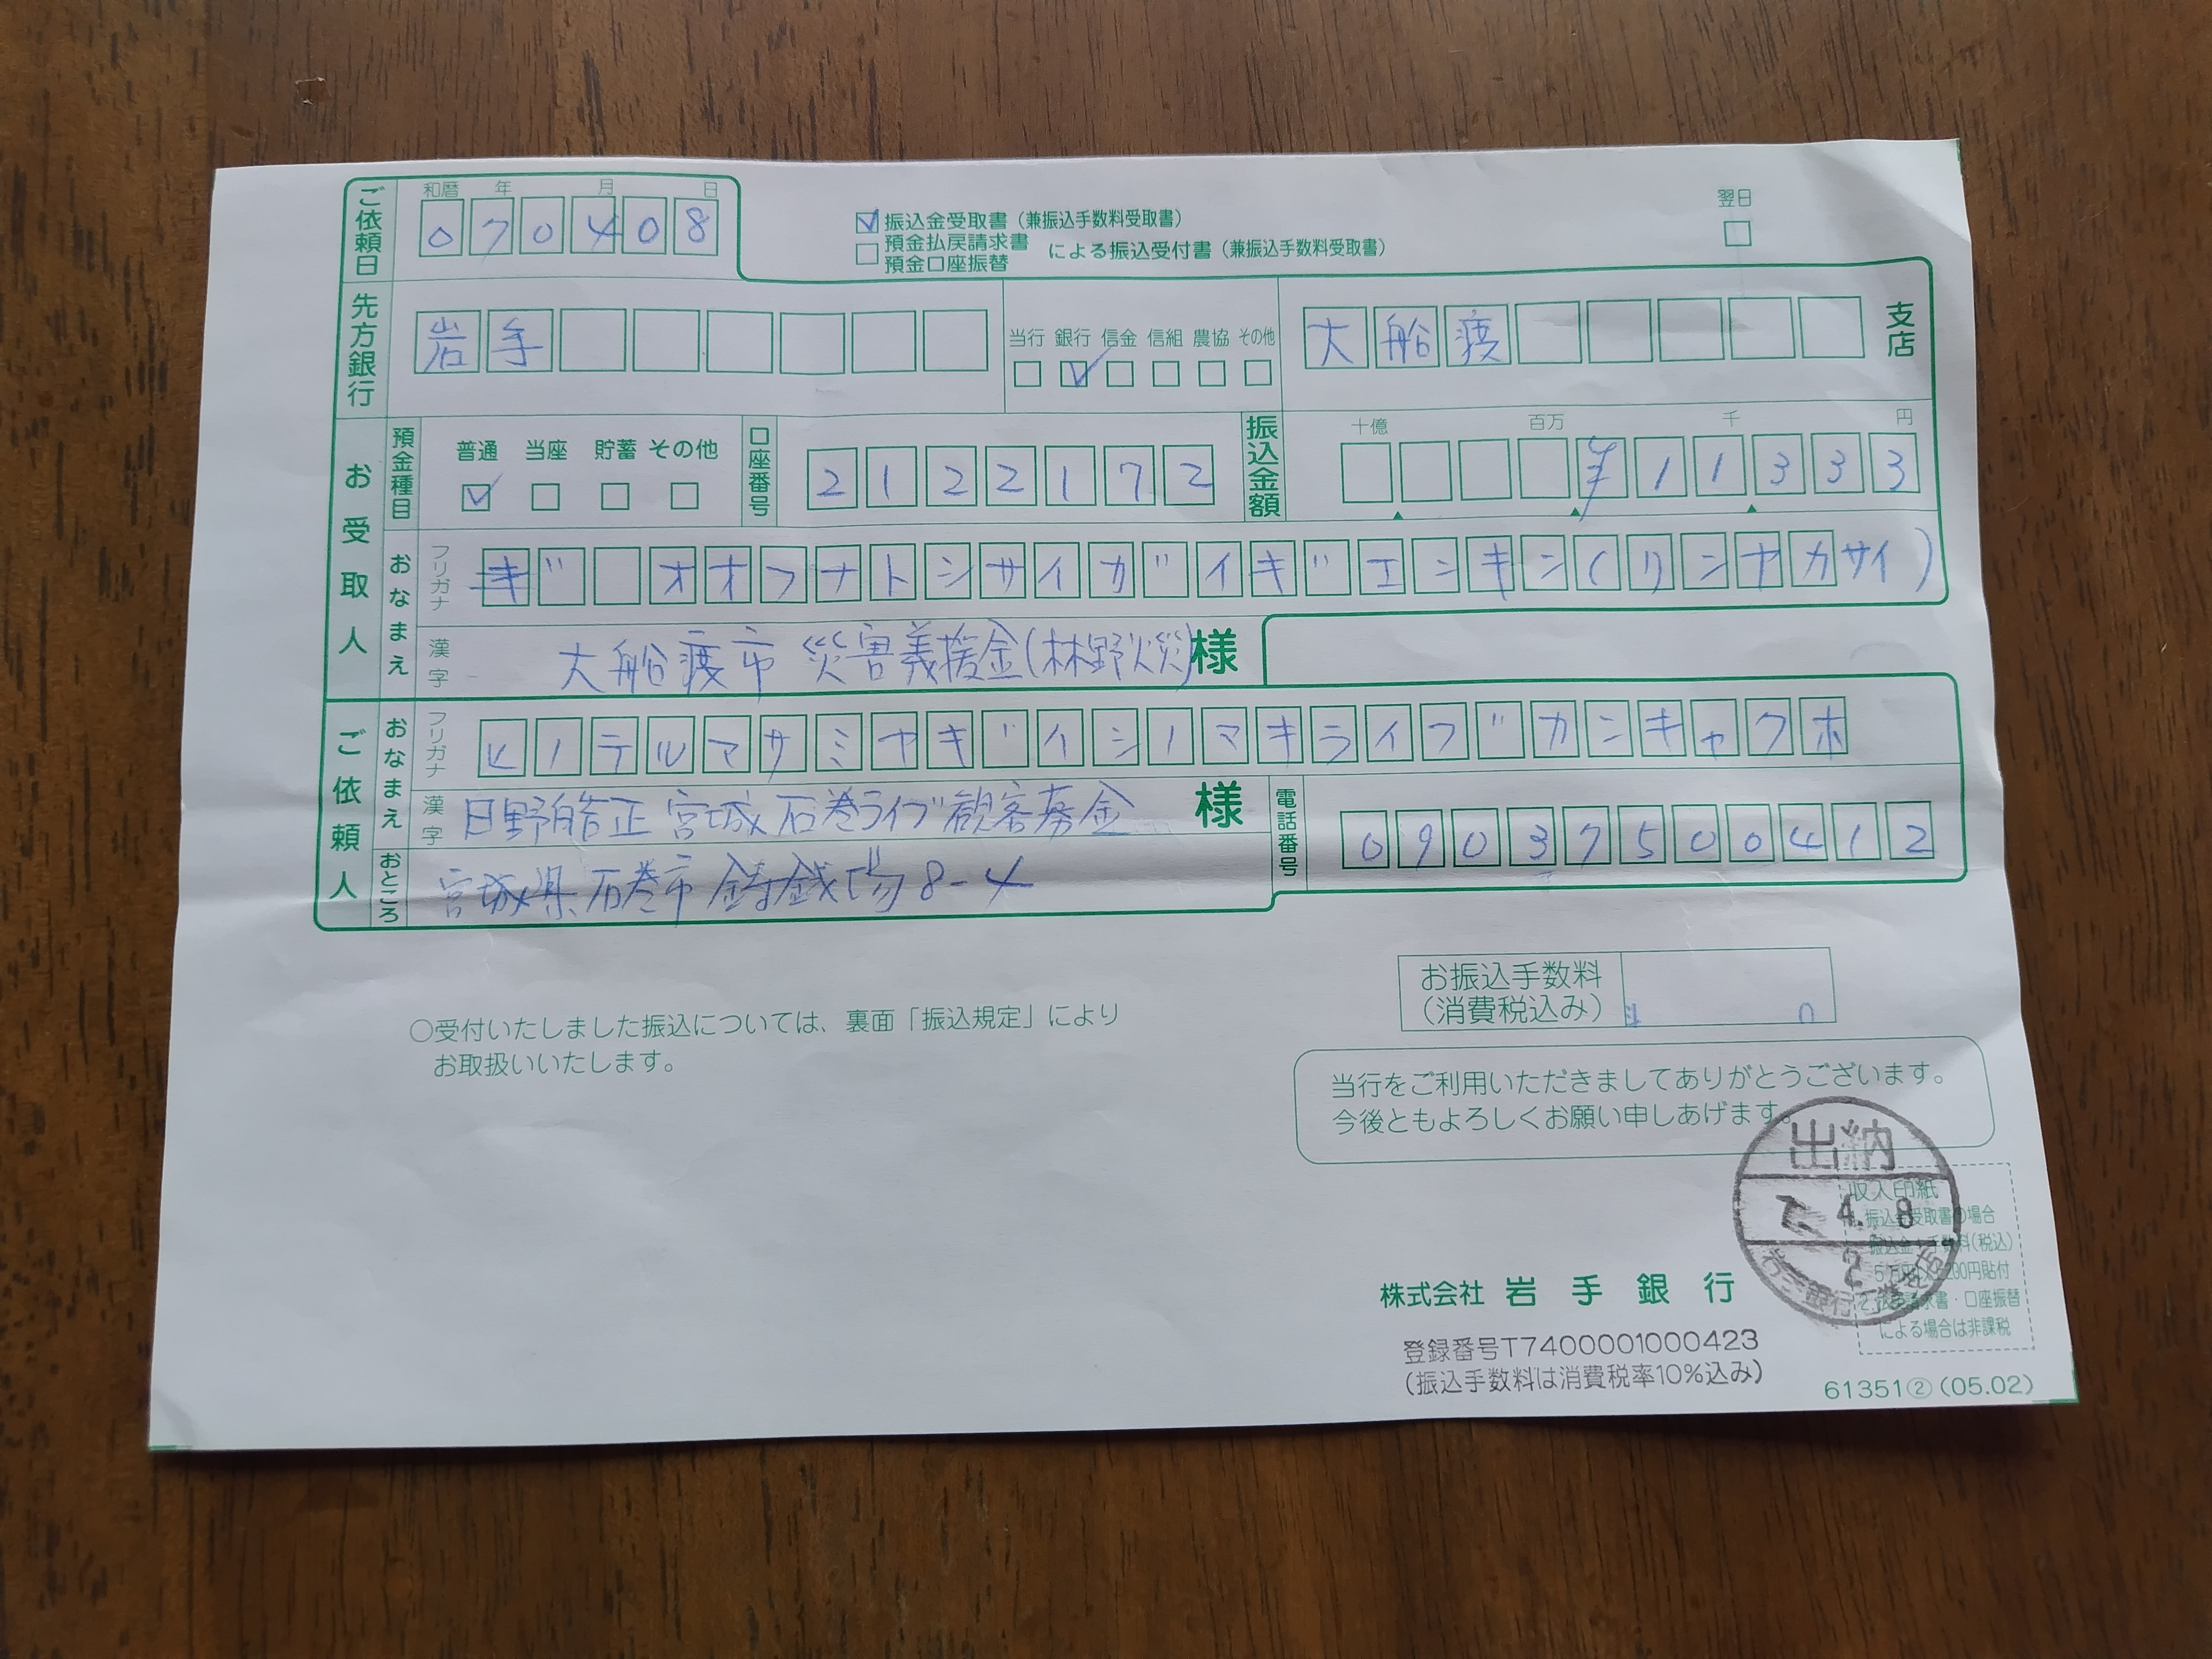 ご依頼日 和暦 年 月 日
070408
☑ 振込金受取書（兼振込手数料受取書）
□ 預金払戻請求書
預金口座振替 による振込受付書（兼振込手数料受取書）
翌日
先方銀行 岩手 当行 銀行 信金 信組 農協 その他 大船渡 支店
お受取人 預金種目 普通 当座 貯蓄 その他 口座番号 2122172 振込金額 十億 百万 千 円 ¥111333
おなまえ フリガナ ギ オオフナトシサイガイギエンキン(リンヤカサイ)
漢字 大船渡市 災害義援金(林野火災) 様
ご依頼人 おなまえ フリガナ ヒノテルマサミヤギイシノマキライブカンキャクボ
漢字 日野皓正 宮城 石巻ライブ観客募金 様 電話番号 09037500412
おところ 宮城県石巻市鋳銭場8-4
お振込手数料
（消費税込み） ¥ 0
○受付いたしました振込については、裏面「振込規定」により
お取扱いいたします。
当行をご利用いただきましてありがとうございます。
今後ともよろしくお願い申しあげます。
出納
7. 4. 8
2
収入印紙
振込金受取書の場合
による場合は非課税
株式会社 岩手銀行
登録番号T7400001000423
（振込手数料は消費税率10%込み）
61351②（05.02）